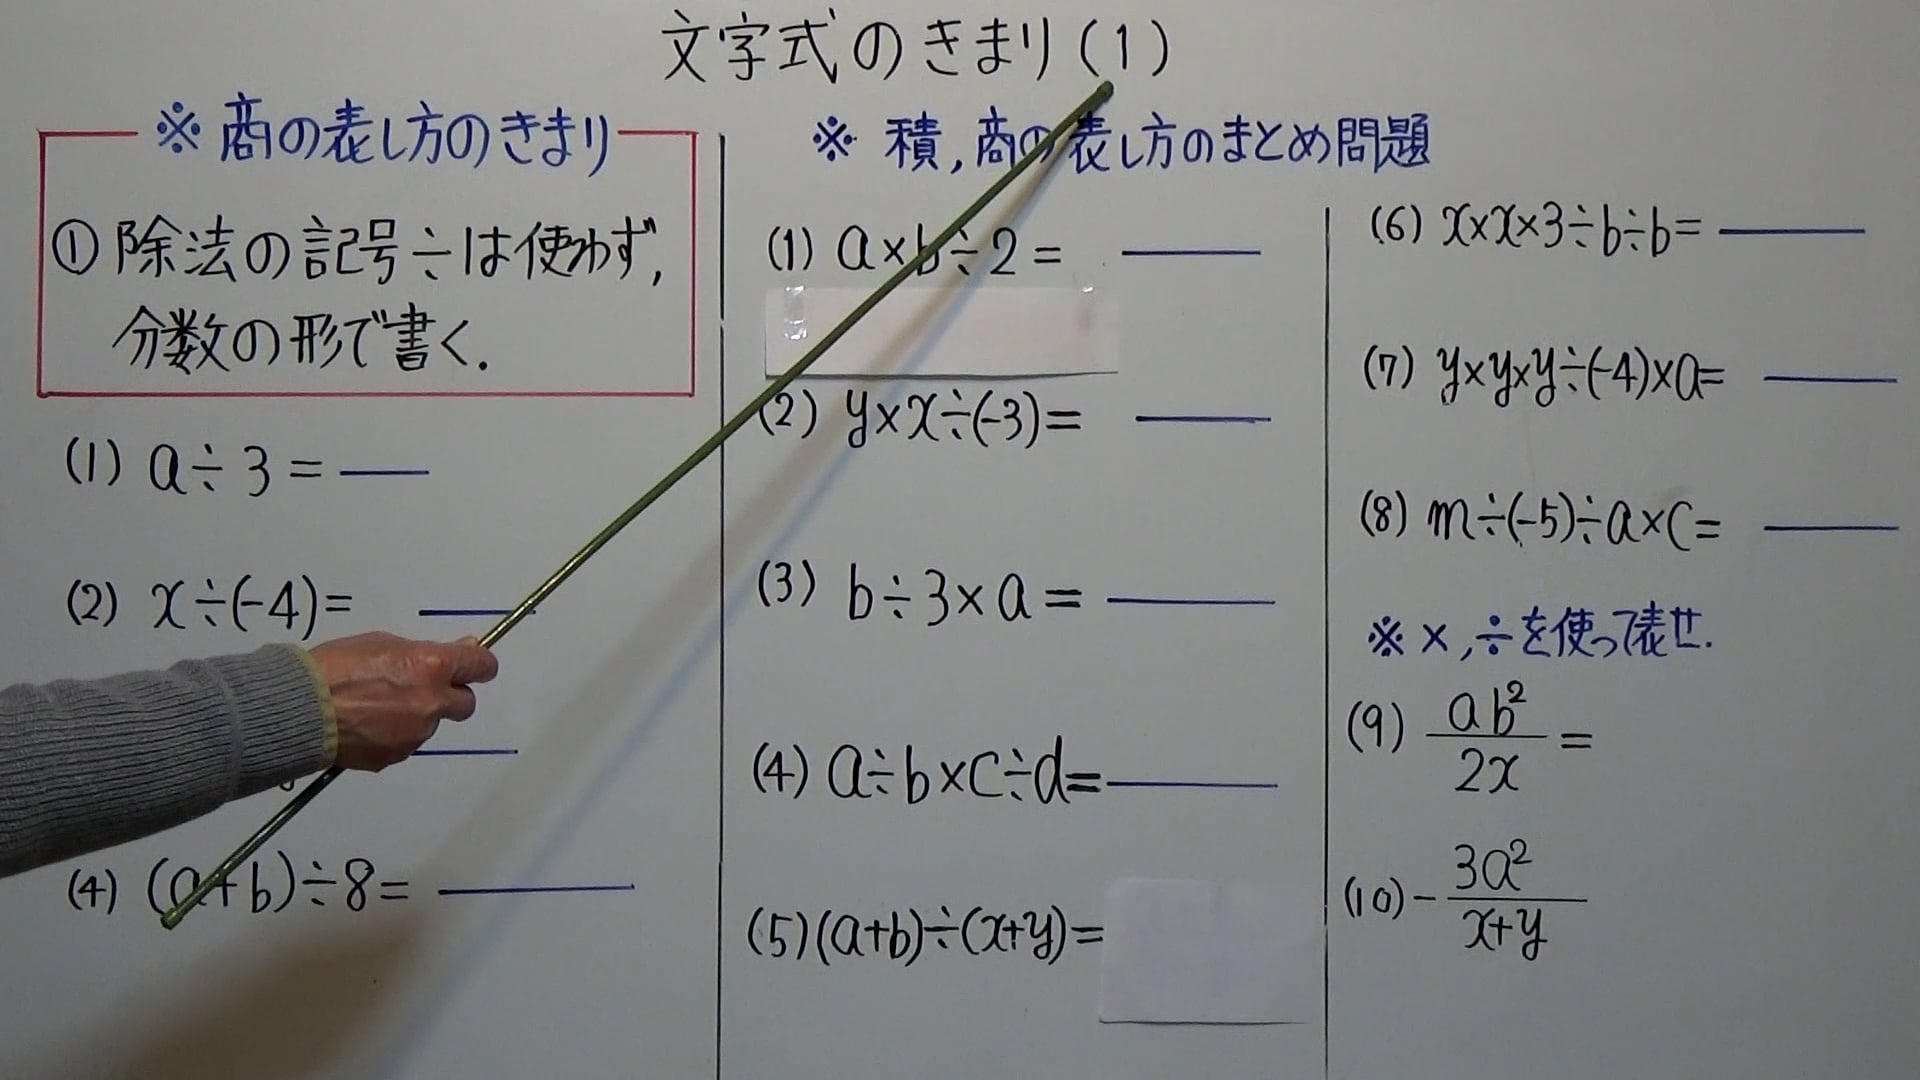 文字式のきまり(1)
※商の表し方のきまり
①除法の記号÷は使わず,
分数の形で書く.
(1) a÷3=
(2) x÷(-4)=
(4) (a+b)÷8=
※ 積,商の表し方のまとめ問題
(1) a×b÷2=
(2) y×x÷(-3)=
(3) b÷3×a=
(4) a÷b×c÷d=
(5)(a+b)÷(x+y)=
(6) x×x×3÷b÷b=
(7) y×y×y÷(-4)×a=
(8) m÷(-5)÷a×c=
※ ×,÷を使って表せ.
(9) ab²/2x =
(10) - 3a²/x+y